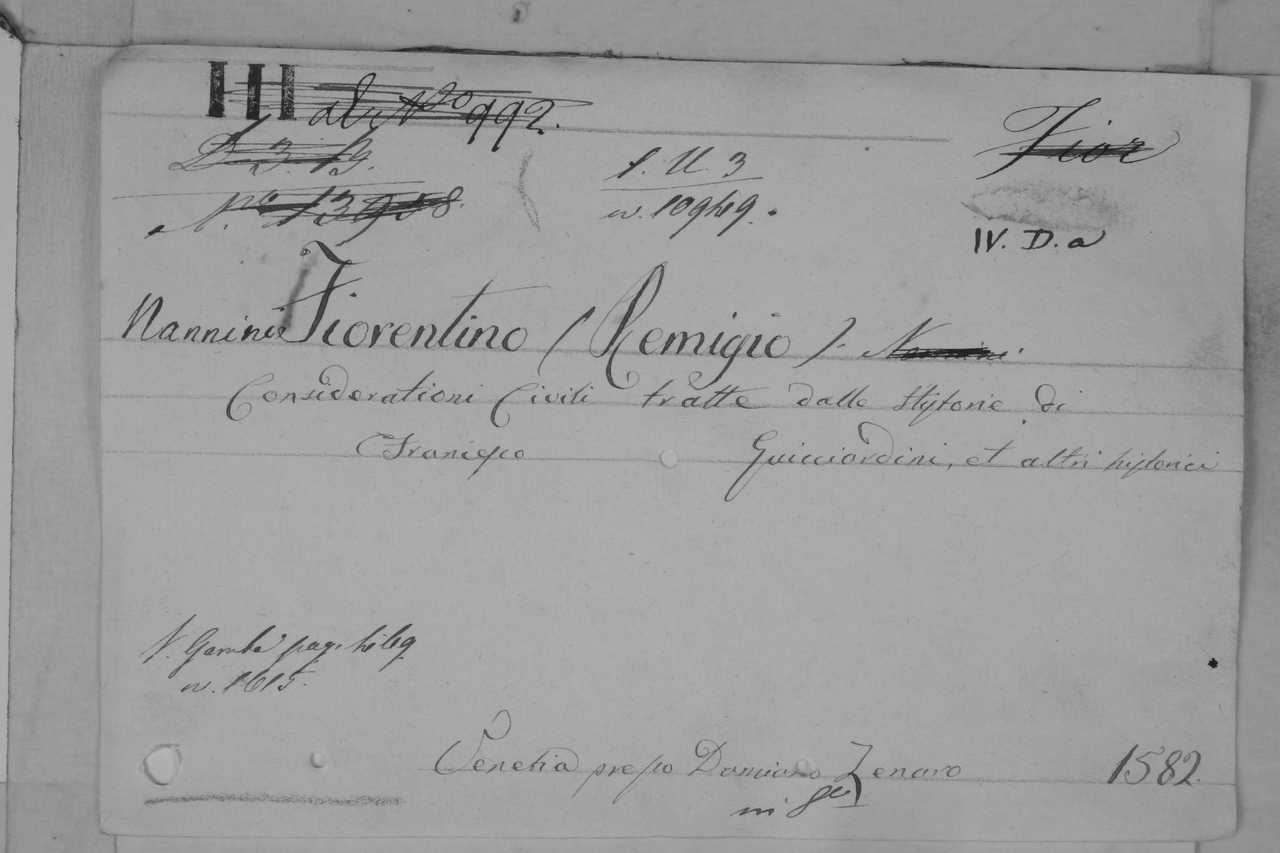 III al N.º 992.
Fior
L. 3. 19.
1. U. 3
N.º 13958.
n. 10949.
IV. D. a
Nannini Fiorentino (Remigio).
Considerationi Civili tratte dalle Historie di
Francesco Guicciardini, et altri historici
V. Gamba pag.
n. 1615.
Venetia presso Damiano Zenaro 1582
in 8º